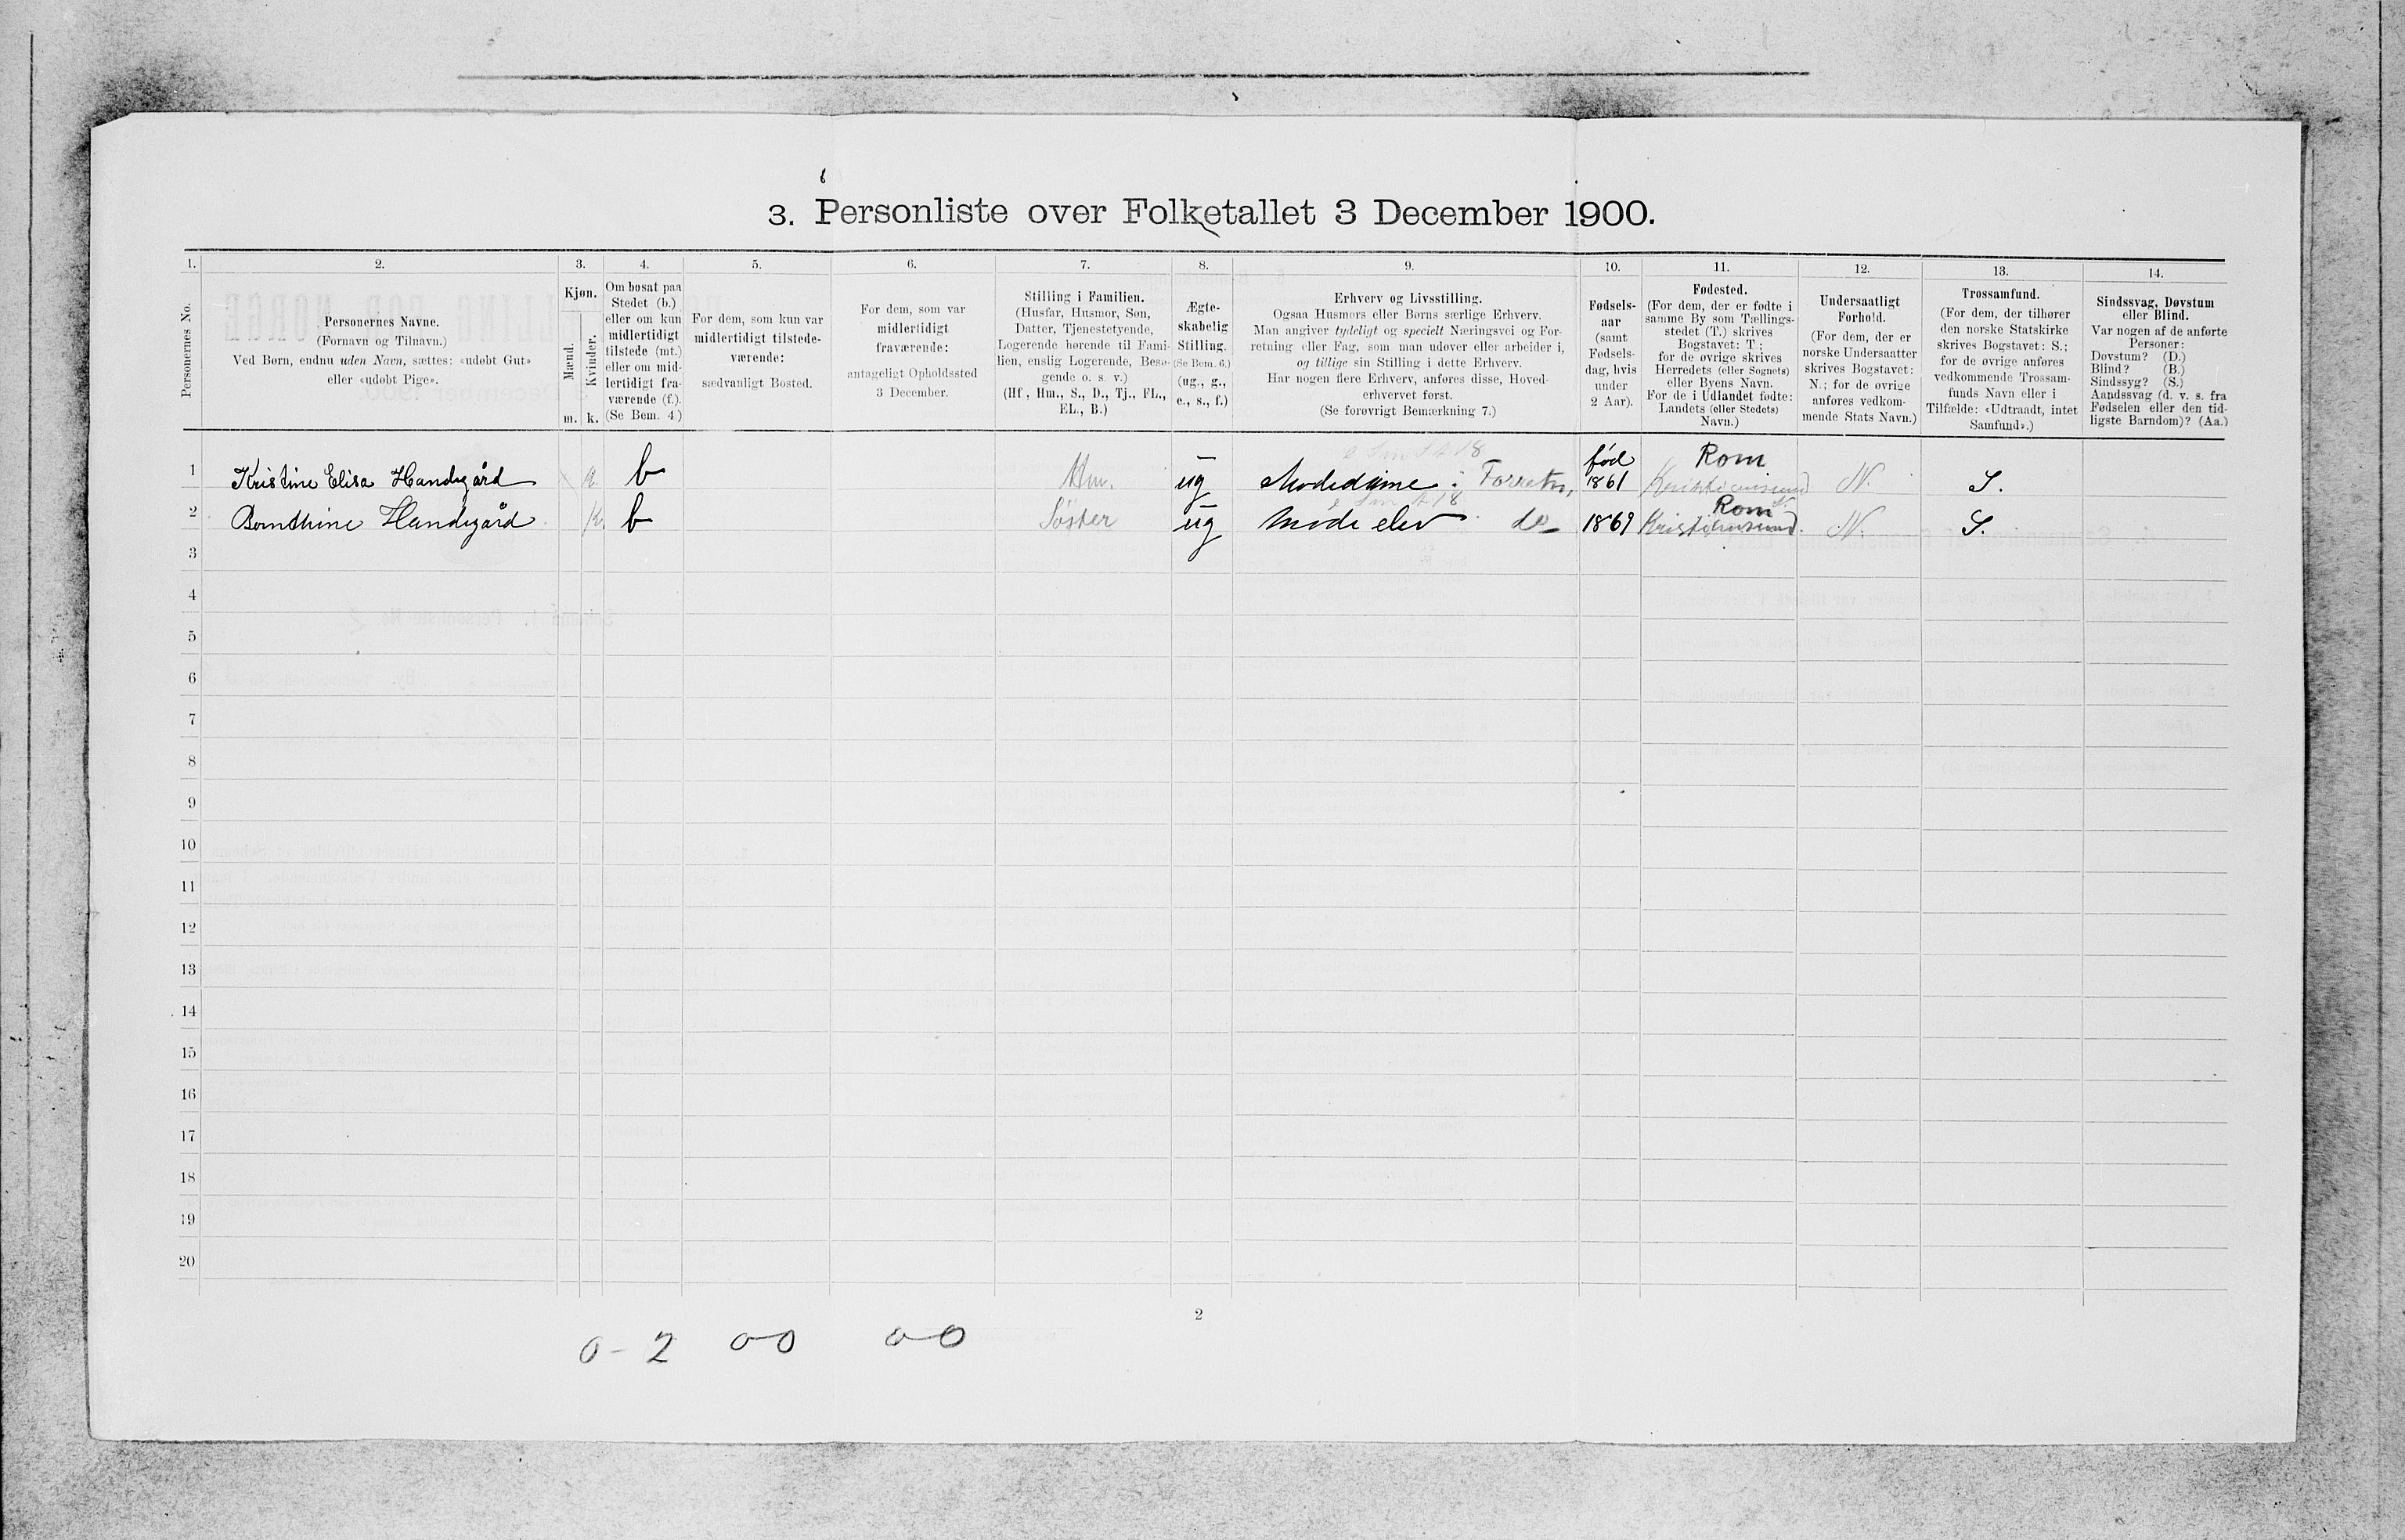 3. Personliste over Folketallet 3 December 1900.
1. 2. 3. 4. 5. 6. 7. 8. 9. 10. 11. 12. 13. 14.
Personernes No.
Personernes Navne.
(Fornavn og Tilnavn.)
Ved Børn, endnu uden Navn, sættes: «udøbt Gut»
eller «udøbt Pige».
Kjøn.
Mænd.
m.
Kvinder.
k.
Om bosat paa
Stedet (b.)
eller om kun
midlertidigt
tilstede (mt.)
eller om mid-
lertidigt fra-
værende (f.).
(Se Bem. 4.)
For dem, som kun var
midlertidigt tilstede-
værende:
sædvanligt Bosted.
For dem, som var
midlertidigt
fraværende:
antageligt Opholdssted
3 December.
Stilling i Familien.
(Husfar, Husmor, Søn,
Datter, Tjenestetyende,
Logerende hørende til Fami-
lien, enslig Logerende, Besø-
gende o. s. v.)
(Hf, Hm., S., D., Tj., FL.,
EL., B.)
Ægte-
skabelig
Stilling.
(Se Bem. 6.)
(ug., g.,
e., s., f.)
Erhverv og Livsstilling.
Ogsaa Husmors eller Børns særlige Erhverv.
Man angiver tydeligt og specielt Næringsvei og For-
retning eller Fag, som man udøver eller arbeider i,
og tillige sin Stilling i dette Erhverv.
Har nogen flere Erhverv, anføres disse, Hoved-
erhvervet først.
(Se forøvrigt Bemærkning 7.)
Fødsels-
aar
(samt
Fødsels-
dag, hvis
under
2 Aar).
Fødested.
(For dem, der er fødte i
samme By som Tællings-
stedet (T.) skrives
Bogstavet: T;
for de øvrige skrives
Herredets (eller Sognets)
eller Byens Navn.
For de i Udlandet fødte:
Landets (eller Stedets)
Navn.)
Undersaatligt
Forhold.
(For dem, der er
norske Undersaatter
skrives Bogstavet:
N.; for de øvrige
anføres vedkom-
mende Stats Navn.)
Trossamfund.
(For dem, der tilhører
den norske Statskirke
skrives Bogstavet: S.;
for de øvrige anføres
vedkommende Trossam-
funds Navn eller i
Tilfælde: «Udtraadt, intet
Samfund».)
Sindssvag, Døvstum
eller Blind.
Var nogen af de anførte
Personer:
Døvstum? (D.)
Blind? (B.)
Sindssyg? (S.)
Aandssvag (d. v. s. fra
Fødselen eller den tid-
ligste Barndom)? (Aa.)
1 Kristine Elisa Handegård k. b Hm. ug Modedame i Forretn. fød 1861 Rom Kristiansund N. S.
2 Handegård k. b Søster ug Mode elev do 1869 Rom Kristiansund N. N. S.
3
4
5
6
7
8
9
10
11
12
13
14
15
16
17
18
19
20
2
0-2 0-0 0-0